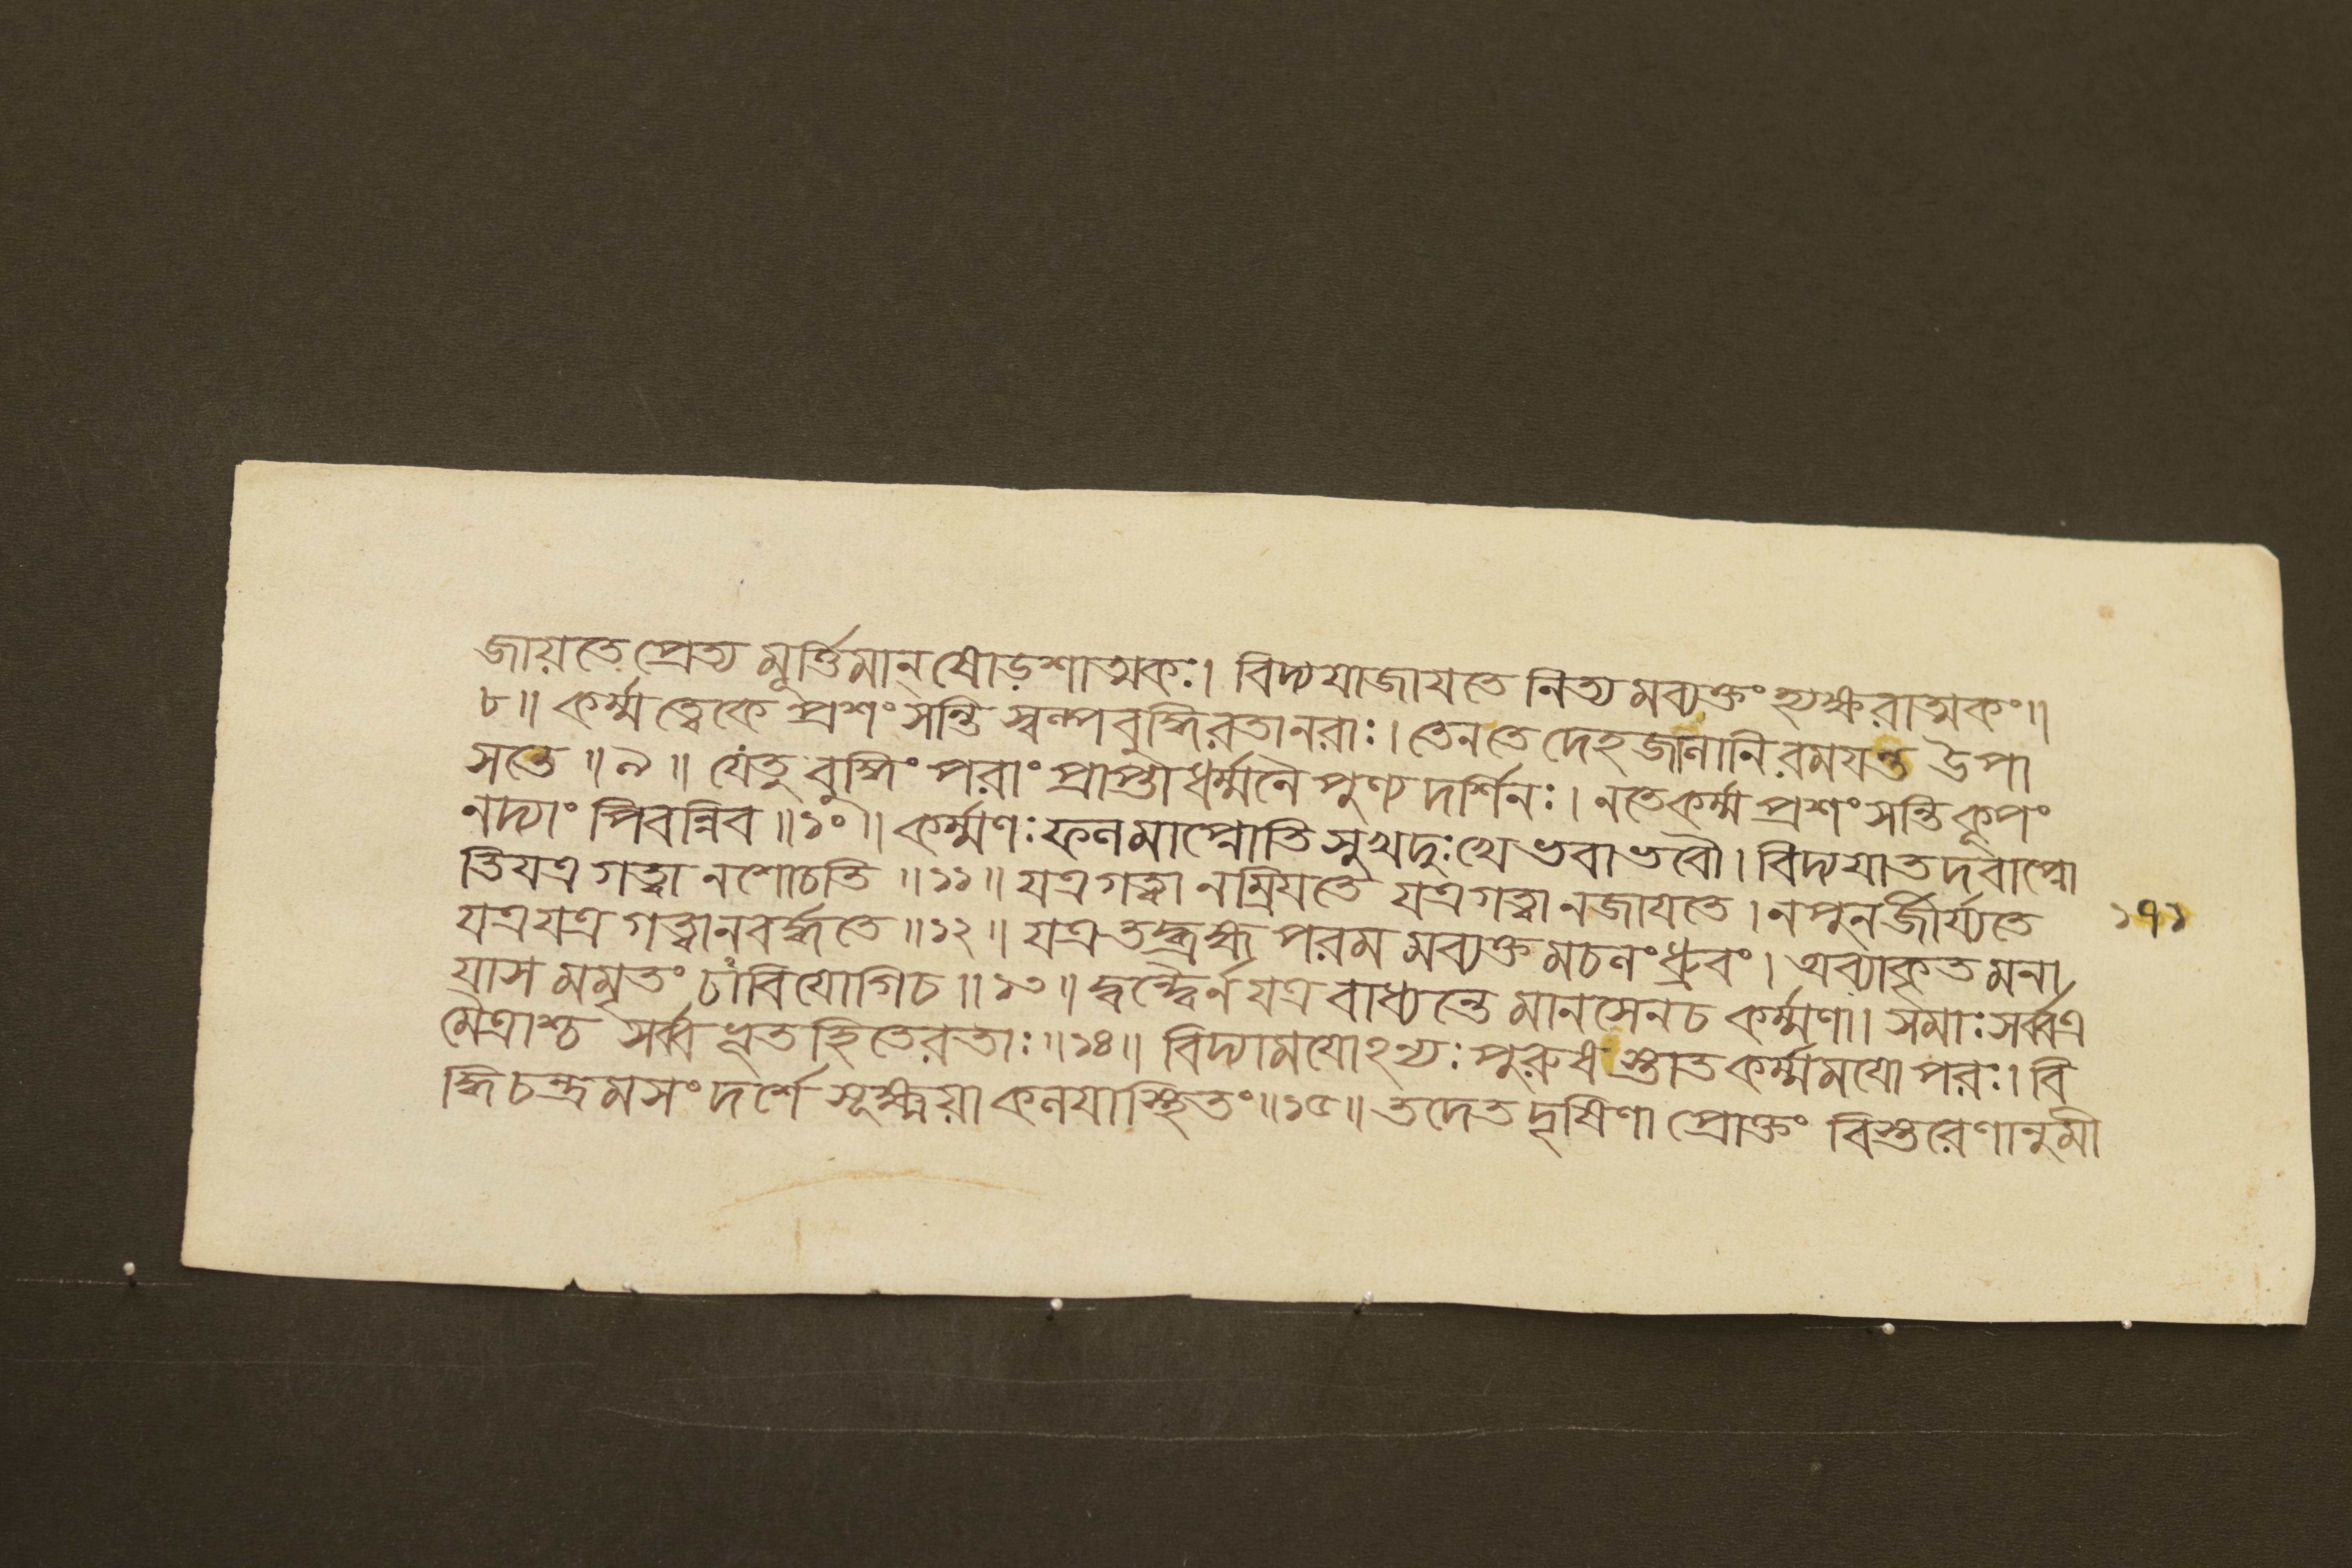 জায়তে প্রেত্য মূর্ত্তিমান্ ষোড়শাত্মকঃ। বিদ্যযাজাযতে নিত্য মব্যক্তং হ্যক্ষরাত্মকং॥
৮॥ কর্ম্ম ত্বেকে প্রশংসন্তি স্বল্পবুদ্ধিরতানরাঃ। তেনতে দেহজালানি রমযন্ত উপা
সতে ॥৯॥ যেতু বুদ্ধিং পরাং প্রাপ্তা ধর্ম্মনৈ পুণ্য দর্শিনঃ। নতেকর্ম্ম প্রশংসন্তি কূপং
নদ্যাং পিবন্নিব ॥১০॥ কর্ম্মণঃ ফলমাপ্নোতি সুখদুঃখে ভবাভবৌ। বিদ্যযাতদবাপ্নো
তিযত্র গত্বা নশোচতি ॥১১॥ যত্রগত্বা নম্রিযতে যত্রগত্বা নজাযতে। নপুনর্জীর্য্যতে
যত্রযত্র গত্বানবর্দ্ধতে ॥১২॥ যত্রতদ্ব্রহ্ম পরম মব্যক্ত মচলংধ্রুবং। অব্যাকৃত মনা
য়াস মমৃতং চাবিযোগিচ ॥১৩॥ দ্বন্দ্বৈর্নযত্র বাধ্যন্তে মানসেনচ কর্ম্মণা। সমাঃসর্ব্বত্র
মৈত্রাশ্চ সর্ব্বভূতহিতেরতাঃ ॥১৪॥ বিদ্যামযোঽন্যঃ পুরুষ স্তাত কর্ম্মমযো পরঃ। বি
দ্ধিচন্দ্রমসং দর্শে সূক্ষ্ময়া কলযাস্থিতং॥১৫॥ তদেত দৃষিণা প্রোক্তং বিস্তরেণানুমী
১৭১